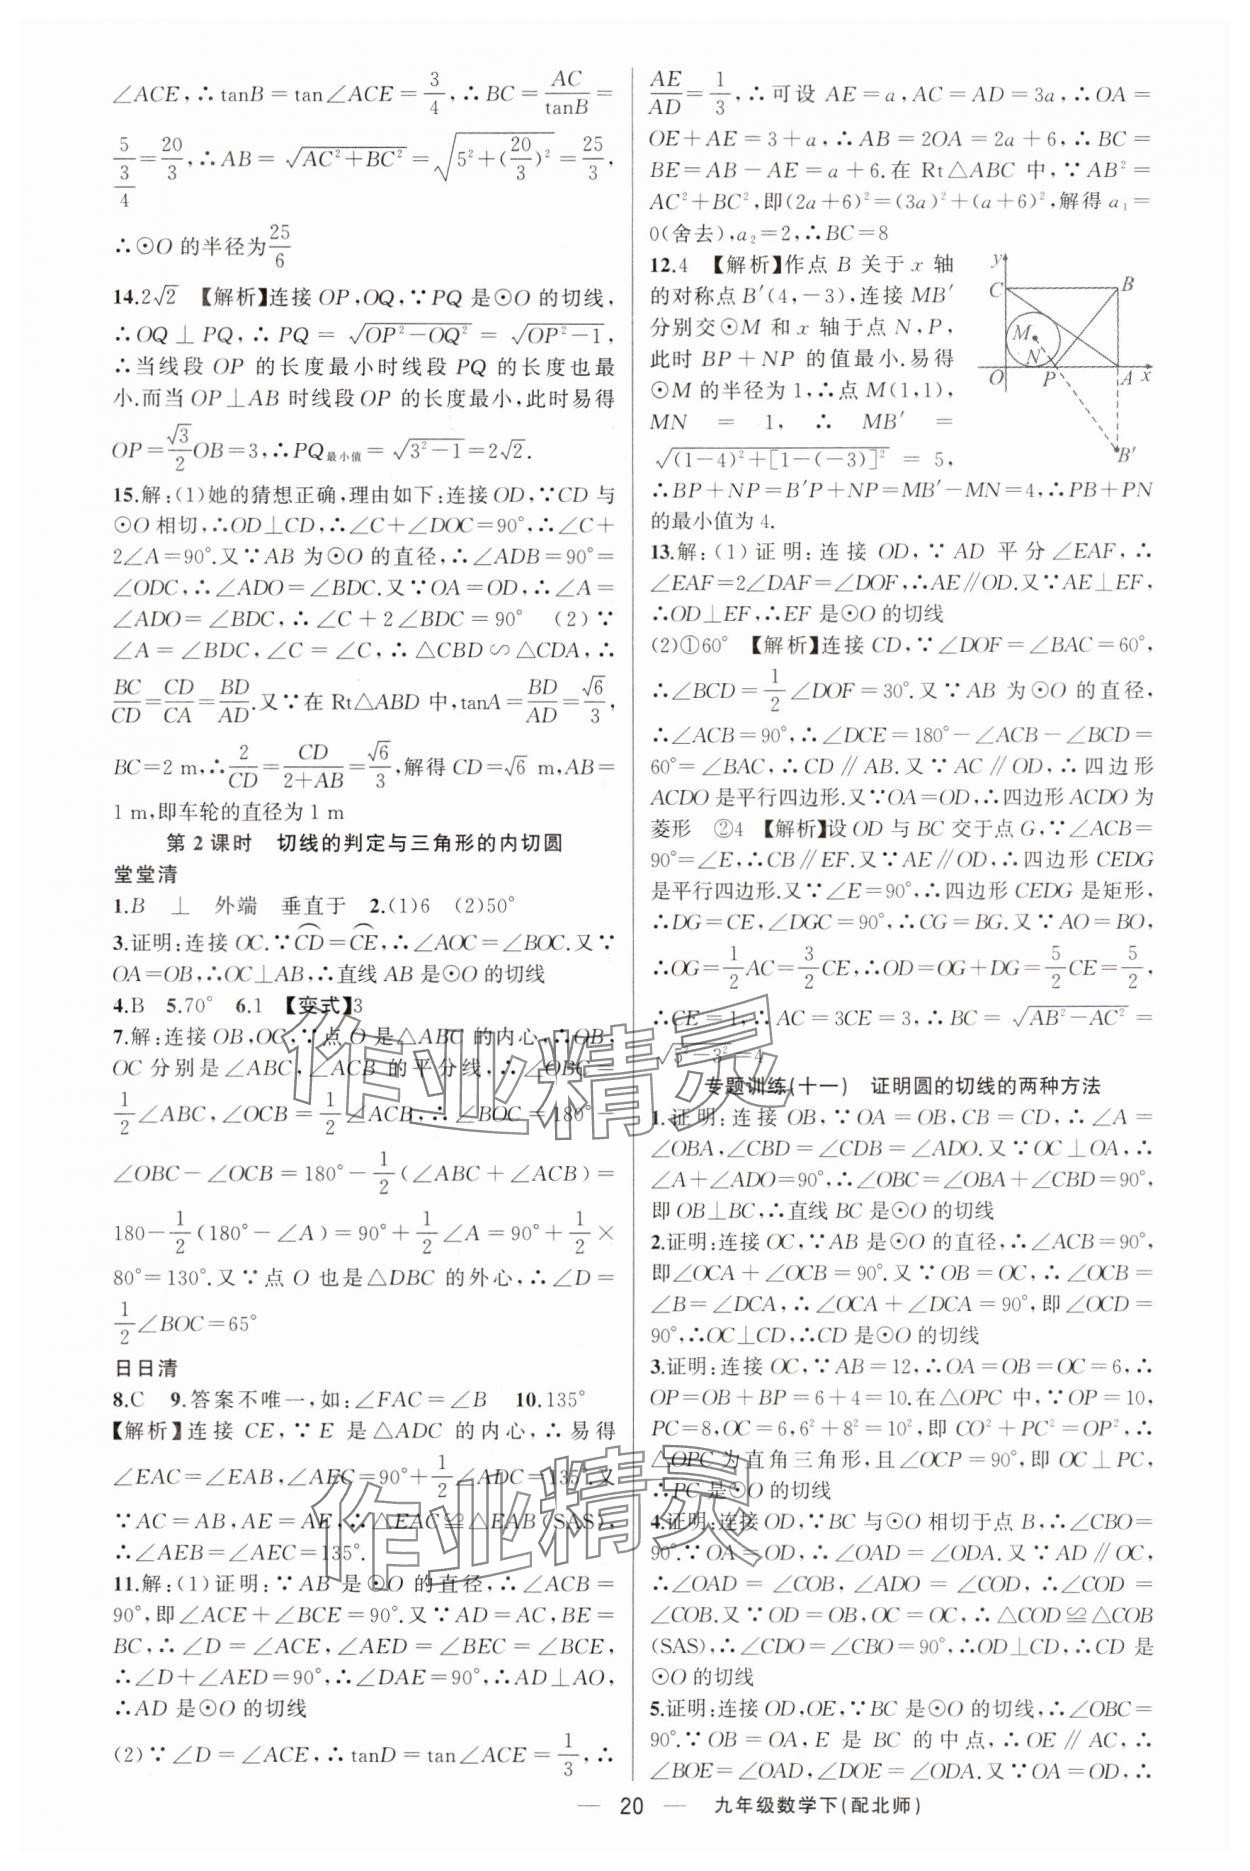 ∠ACE,∴tanB=tan∠ACE=3/4,∴BC=AC/tanB=
5/(3/4)=20/3,∴AB=√(AC²+BC²)=√(5²+(20/3)²)=25/3,
∴⊙O的半径为25/6
14.2√2 【解析】连接OP,OQ,∵PQ是⊙O的切线,
∴OQ⊥PQ,∴PQ=√(OP²-OQ²)=√(OP²-1),
∴当线段OP的长度最小时线段PQ的长度也最
小.而当OP⊥AB时线段OP的长度最小,此时易得
OP=√3/2OB=3,∴PQ最小值=√(3²-1)=2√2.
15.解:(1)她的猜想正确,理由如下:连接OD,∵CD与
⊙O相切,∴OD⊥CD,∴∠C+∠DOC=90°,∴∠C+
2∠A=90°.又∵AB为⊙O的直径,∴∠ADB=90°=
∠ODC,∴∠ADO=∠BDC.又∵OA=OD,∴∠A=
∠ADO=∠BDC,∴∠C+2∠BDC=90° (2)∵
∠A=∠BDC,∠C=∠C,∴△CBD∽△CDA,∴
BC/CD=CD/CA=BD/AD.又∵在Rt△ABD中,tanA=BD/AD=√6/3,
BC=2 m,∴2/CD=CD/(2+AB)=√6/3,解得CD=√6 m,AB=
1 m,即车轮的直径为1 m
第2课时 切线的判定与三角形的内切圆
堂堂清
1.B ⊥ 外端 垂直于 2.(1)6 (2)50°
3.证明:连接OC.∵⌒CD=⌒CE,∴∠AOC=∠BOC.又∵
OA=OB,∴OC⊥AB,∴直线AB是⊙O的切线
4.B 5.70° 6.1 【变式】3
7.解:连接OB,OC,∵点O是△ABC的内心,∴OB,
OC分别是∠ABC,∠ACB的平分线,∴∠OBC=
1/2∠ABC,∠OCB=1/2∠ACB,∴∠BOC=180°-
∠OBC-∠OCB=180°-1/2(∠ABC+∠ACB)=
180-1/2(180°-∠A)=90°+1/2∠A=90°+1/2×
80°=130°.又∵点O也是△DBC的外心,∴∠D=
1/2∠BOC=65°
日日清
8.C 9.答案不唯一,如:∠FAC=∠B 10.135°
【解析】连接CE,∵E是△ADC的内心,∴易得
∠EAC=∠EAB,∠AEC=90°+1/2∠ADC=135°.又
∵AC=AB,AE=AE,∴△EAC≌△EAB(SAS),
∴∠AEB=∠AEC=135°.
11.解:(1)证明:∵AB是⊙O的直径,∴∠ACB=
90°,即∠ACE+∠BCE=90°.又∵AD=AC,BE=
BC,∴∠D=∠ACE,∠AED=∠BEC=∠BCE,
∴∠D+∠AED=90°,∴∠DAE=90°,∴AD⊥AO,
∴AD是⊙O的切线
(2)∵∠D=∠ACE,∴tanD=tan∠ACE=1/3,∴
AE/AD=1/3,∴可设AE=a,AC=AD=3a,∴OA=
OE+AE=3+a,∴AB=2OA=2a+6,∴BC=
BE=AB-AE=a+6.在Rt△ABC中,∵AB²=
AC²+BC²,即(2a+6)²=(3a)²+(a+6)²,解得a₁=
0(舍去),a₂=2,∴BC=8
12.4 【解析】作点B关于x轴
的对称点B′(4,-3),连接MB′
分别交⊙M和x轴于点N,P,
此时BP+NP的值最小.易得
⊙M的半径为1,∴点M(1,1),
MN=1,∴MB′=
√((1-4)²+[1-(-3)]²)=5,
∴BP+NP=B′P+NP=MB′-MN=4,∴PB+PN
的最小值为4.
y
C
B
M
N
O
P
A
x
B′
13.解:(1)证明:连接OD,∵AD平分∠EAF,∴
∠EAF=2∠DAF=∠DOF,∴AE∥OD.又∵AE⊥EF,
∴OD⊥EF,∴EF是⊙O的切线
(2)①60° 【解析】连接CD,∵∠DOF=∠BAC=60°,
∴∠BCD=1/2∠DOF=30°.又∵AB为⊙O的直径,
∴∠ACB=90°,∴∠DCE=180°-∠ACB-∠BCD=
60°=∠BAC,∴CD∥AB.又∵AC∥OD,∴四边形
ACDO是平行四边形.又∵OA=OD,∴四边形ACDO为
菱形 ②4 【解析】设OD与BC交于点G,∵∠ACB=
90°=∠E,∴CB∥EF.又∵AE∥OD,∴四边形CEDG
是平行四边形.又∵∠E=90°,∴四边形CEDG是矩形,
∴DG=CE,∠DGC=90°,∴CG=BG.又∵AO=BO,
∴OG=1/2AC=3/2CE,∴OD=OG+DG=5/2CE=5/2,
∴CE=1,∴AC=3CE=3,∴BC=√(AB²-AC²)=
√(5²-3²)=4
专题训练(十一) 证明圆的切线的两种方法
1.证明:连接OB,∵OA=OB,CB=CD,∴∠A=
∠OBA,∠CBD=∠CDB=∠ADO.又∵OC⊥OA,∴
∠A+∠ADO=90°,∴∠OBC=∠OBA+∠CBD=90°,
即OB⊥BC,∴直线BC是⊙O的切线
2.证明:连接OC,∵AB是⊙O的直径,∴∠ACB=90°,
即∠OCA+∠OCB=90°.又∵OB=OC,∴∠OCB=
∠B=∠DCA,∴∠OCA+∠DCA=90°,即∠OCD=
90°,∴OC⊥CD,∴CD是⊙O的切线
3.证明:连接OC,∵AB=12,∴OA=OB=OC=6,∴
OP=OB+BP=6+4=10.在△OPC中,∵OP=10,
PC=8,OC=6,6²+8²=10²,即CO²+PC²=OP²,∴
△OPC为直角三角形,且∠OCP=90°,即OC⊥PC,
∴PC是⊙O的切线
4.证明:连接OD,∵BC与⊙O相切于点B,∴∠CBO=
90°.∵OA=OD,∴∠OAD=∠ODA.又∵AD∥OC,
∴∠OAD=∠COB,∠ADO=∠COD,∴∠COD=
∠COB.又∵OD=OB,OC=OC,∴△COD≌△COB
(SAS),∴∠CDO=∠CBO=90°,∴OD⊥CD,∴CD是
⊙O的切线
5.证明:连接OD,OE,∵BC是⊙O的切线,∴∠OBC=
90°.∵OB=OA,E是BC的中点,∴OE∥AC,∴
∠BOE=∠OAD,∠DOE=∠ODA.又∵OA=OD,∴
— 20 — 九年级数学下(配北师)
作业精灵
作业精灵